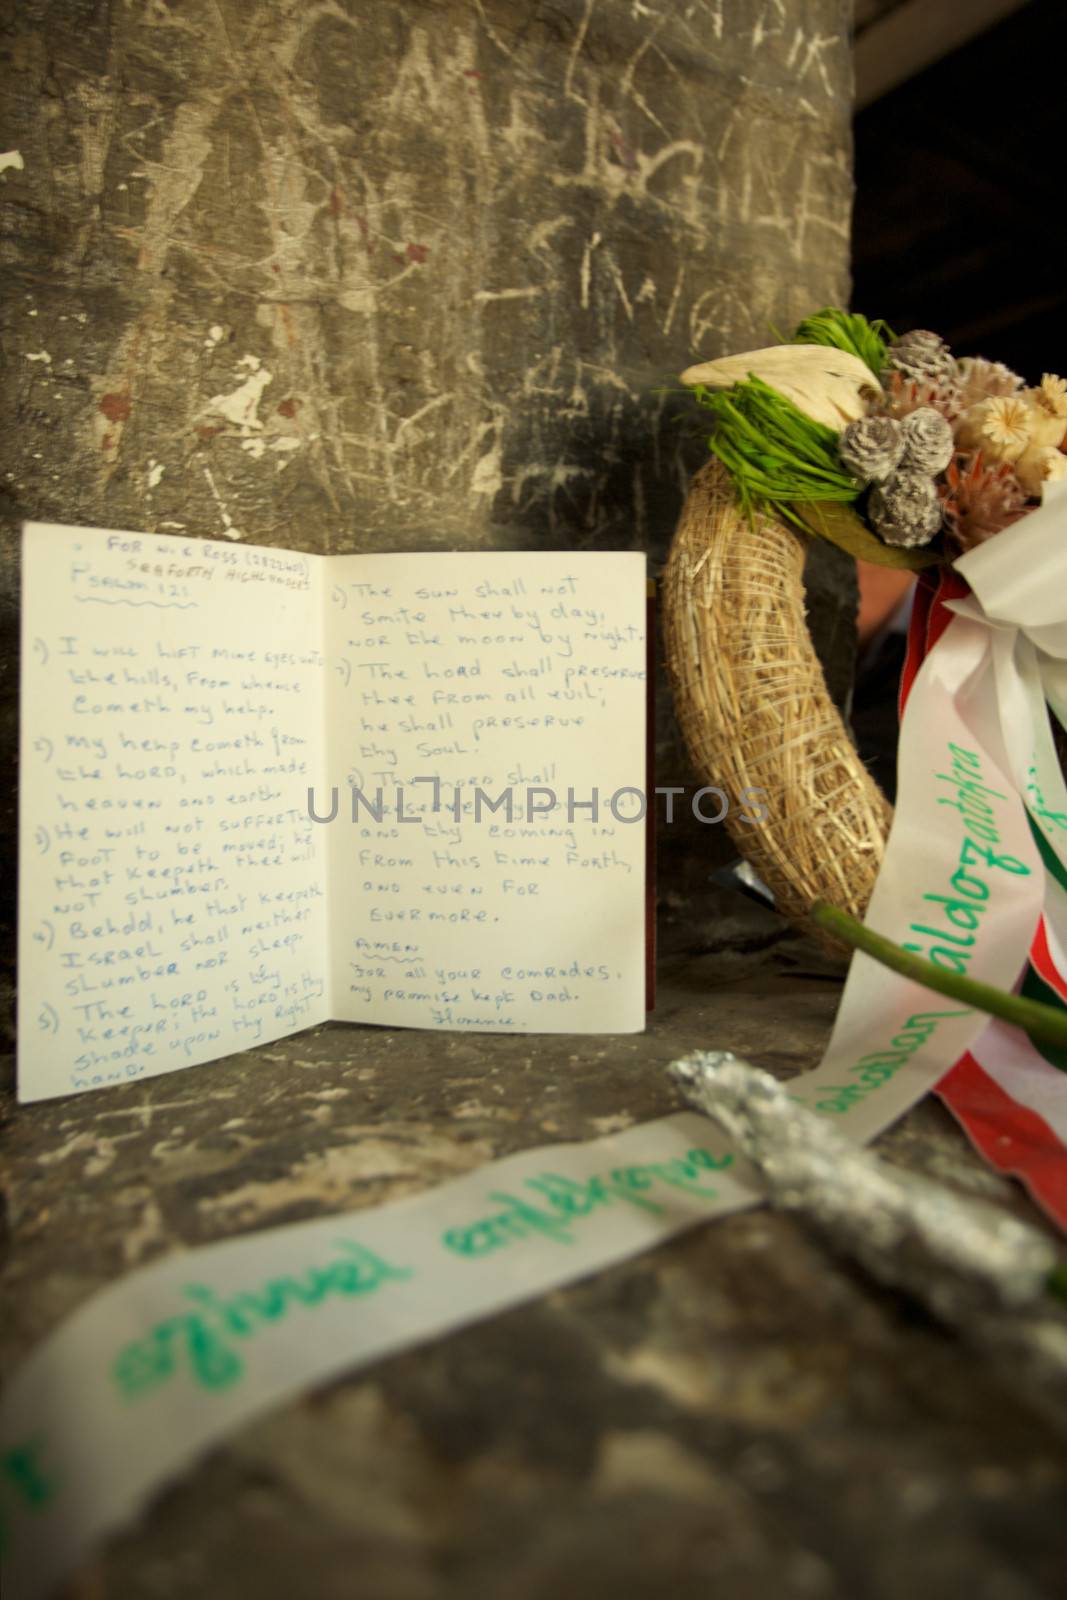 FOR W.K ROSS (282260)
SEAFORTH HIGHLANDERS
PSALM 121
1) I will lift mine eyes unto
the hills, from whence
cometh my help.
2) My help cometh from
the Lord, which made
heaven and earth.
3) He will not suffer thy
foot to be moved; he
that keepeth thee will
not slumber.
4) Behold, he that keepeth
Israel shall neither
slumber nor sleep.
5) The Lord is thy
keeper; the Lord is thy
shade upon thy right
hand.
6) The sun shall not
smite thee by day,
nor the moon by night.
7) The Lord shall preserve
thee from all evil;
he shall preserve
thy soul.
8) The Lord shall
preserve thy going out
and thy coming in
from this time forth,
and even for
evermore.
Amen
For all your comrades.
my promise kept Dad.
Florence.
áldozatokra
UNLIMPHOTOS